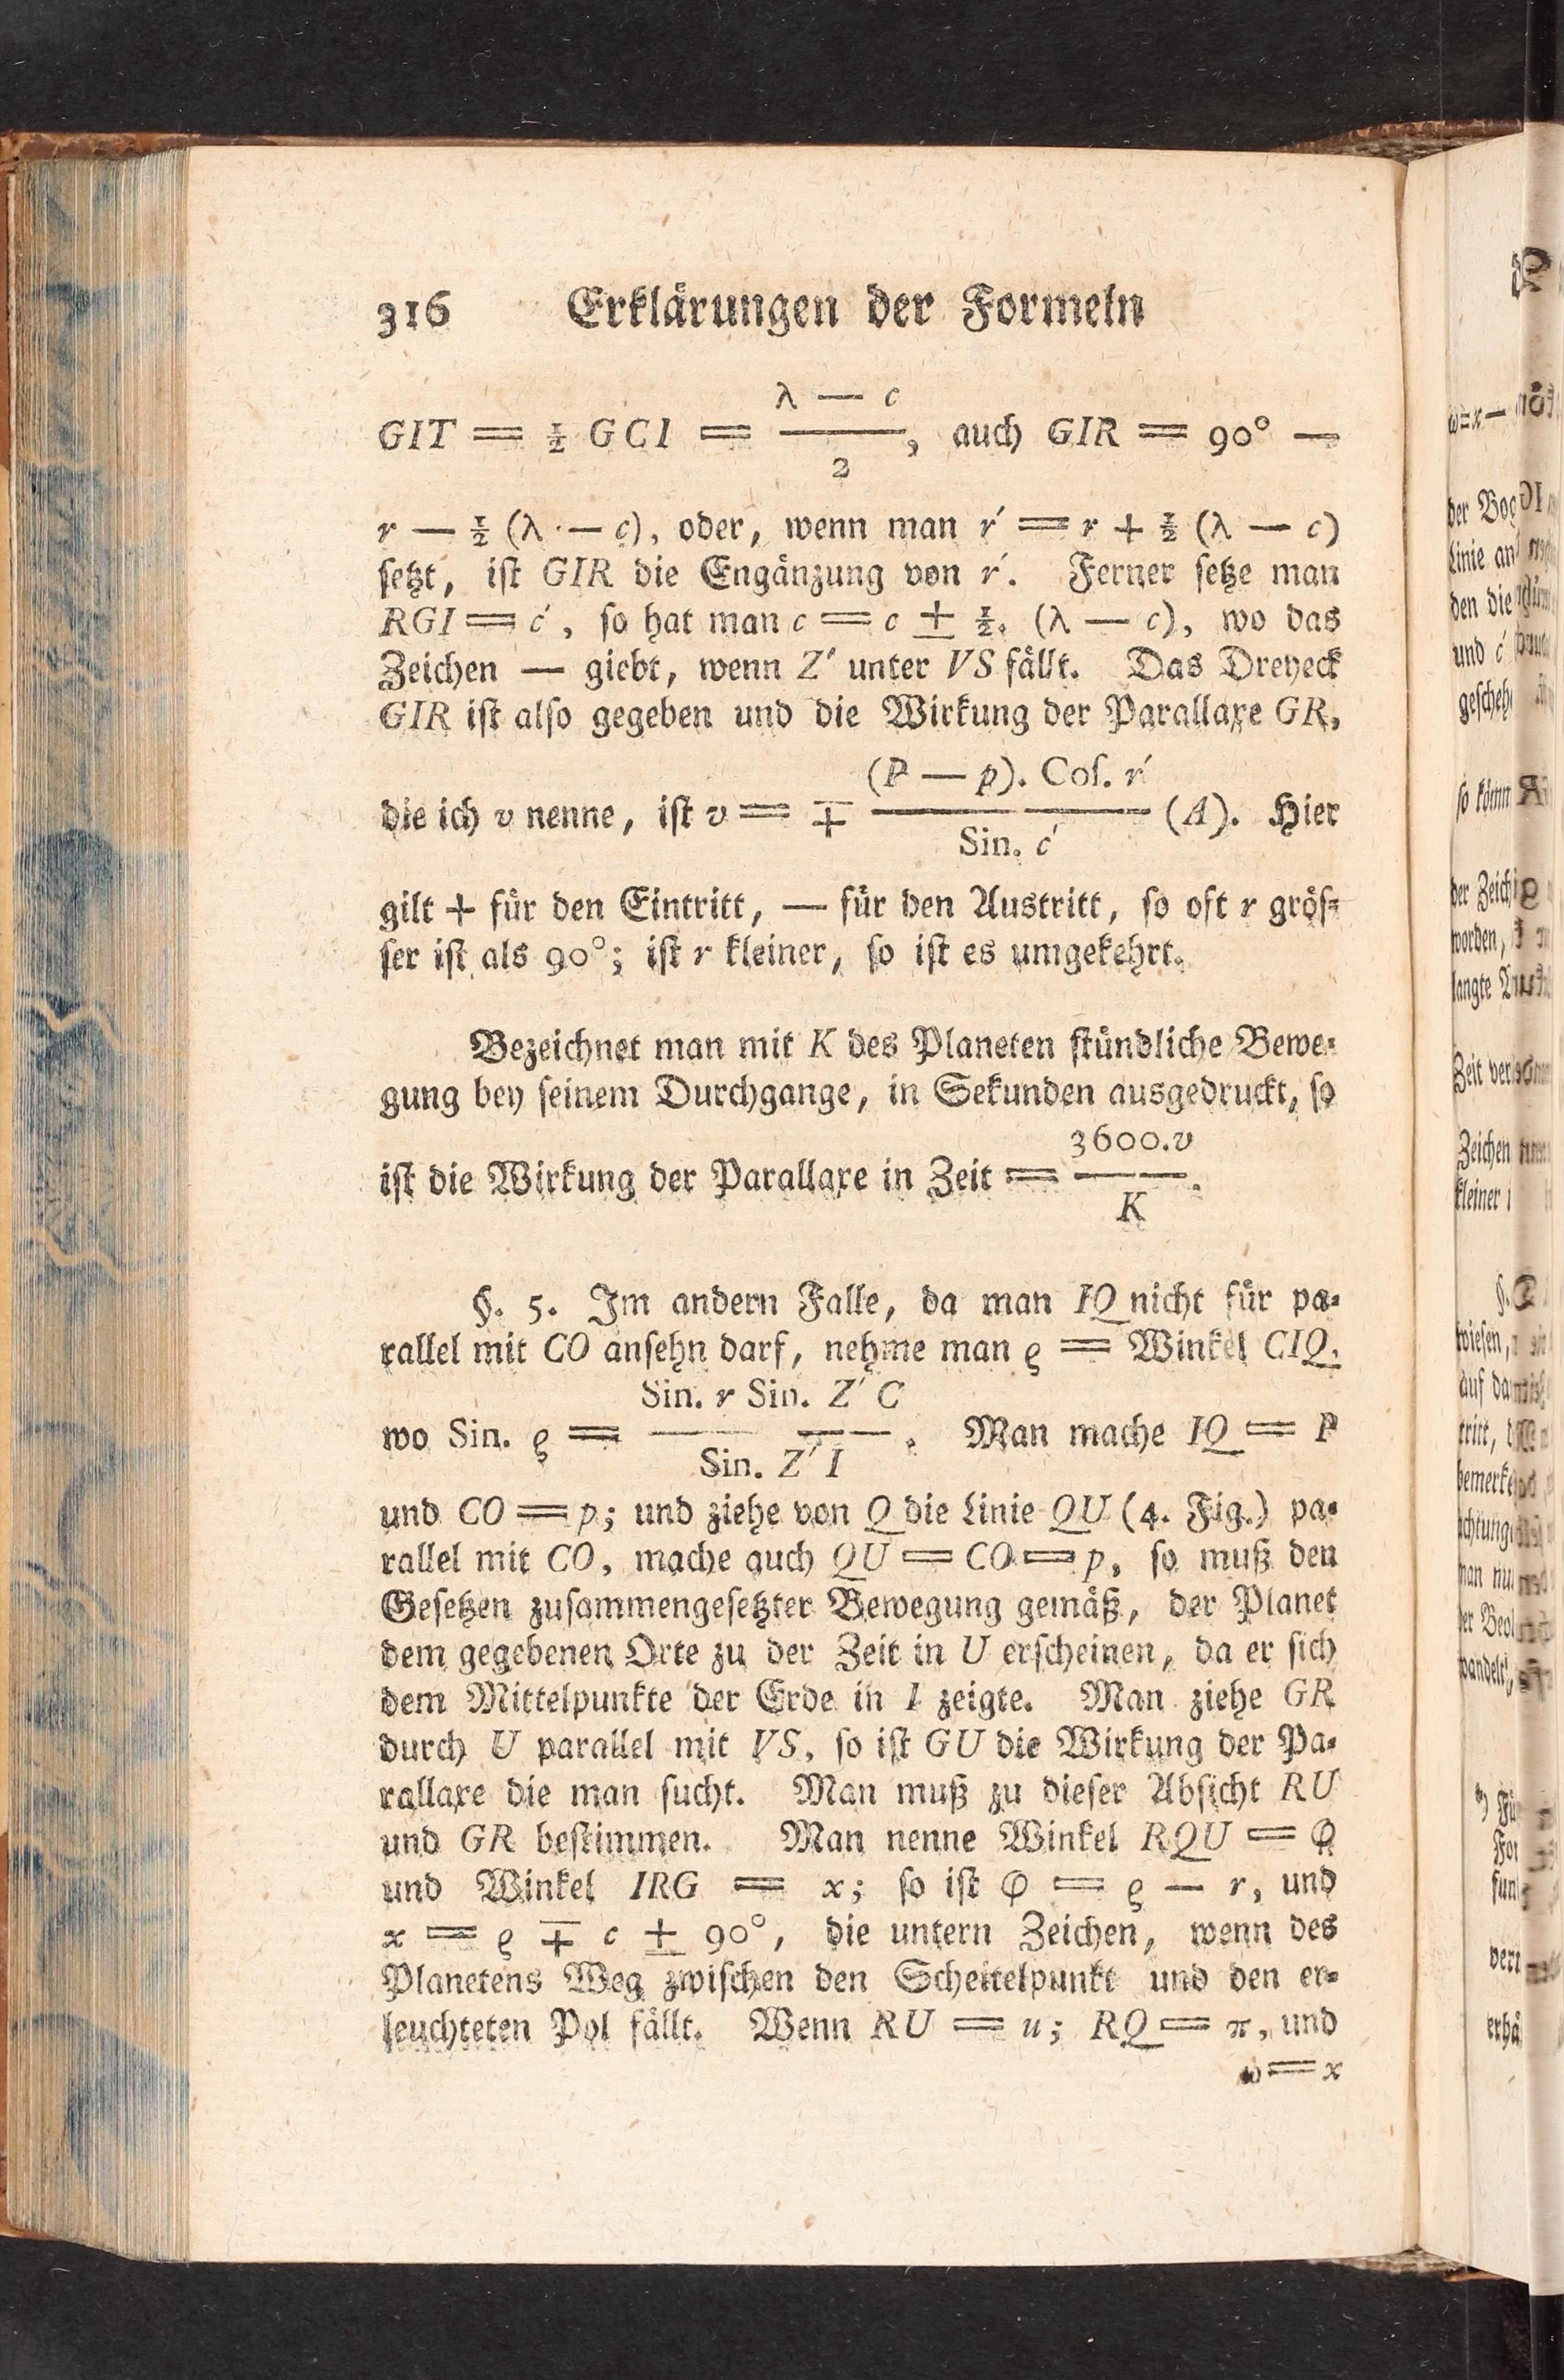 316 Erklärungen der Formeln
GIT = ½ GCI = (λ — c)/2, auch GIR = 90° —
r — ½ (λ — c), oder, wenn man ŕ = r + ½ (λ — c)
setzt, ist GIR die Engänzung von ŕ. Ferner setze man
RGI = ć, so hat man c = c ± ½. (λ — c), wo das
Zeichen — giebt, wenn Z′ unter VS fällt. Das Dreyeck
GIR ist also gegeben und die Wirkung der Parallaxe GR,
die ich v nenne, ist v = ∓ ((P — p). Cos. ŕ)/(Sin. ć) (A). Hier
gilt + für den Eintritt, — für den Austritt, so oft r grös-
ser ist als 90°; ist r kleiner, so ist es umgekehrt.
Bezeichnet man mit K des Planeten stündliche Bewe-
gung bey seinem Durchgange, in Sekunden ausgedruckt, so
ist die Wirkung der Parallaxe in Zeit = (3600.v)/K.
§. 5. Im andern Falle, da man IQ nicht für pa-
rallel mit CO ansehn darf, nehme man ϱ = Winkel CIQ.
wo Sin. ϱ = (Sin. r Sin. Z′ C)/(Sin. Z′ I). Man mache IQ = P
und CO = p; und ziehe von Q die Linie QU (4. Fig.) pa-
rallel mit CO, mache auch QU = CO = p, so muß den
Gesetzen zusammengesetzter Bewegung gemäß, der Planet
dem gegebenen Orte zu der Zeit in U erscheinen, da er sich
dem Mittelpunkte der Erde in I zeigte. Man ziehe GR
durch U parallel mit VS, so ist GU die Wirkung der Pa-
rallaxe die man sucht. Man muß zu dieser Absicht RU
und GR bestimmen. Man nenne Winkel RQU = φ
und Winkel IRG = x; so ist φ = ϱ — r, und
x = ϱ ∓ c ± 90°, die untern Zeichen, wenn des
Planetens Weg zwischen den Scheitelpunkt und den er-
leuchteten Pol fällt. Wenn RU = u; RQ = π, und
ω = x